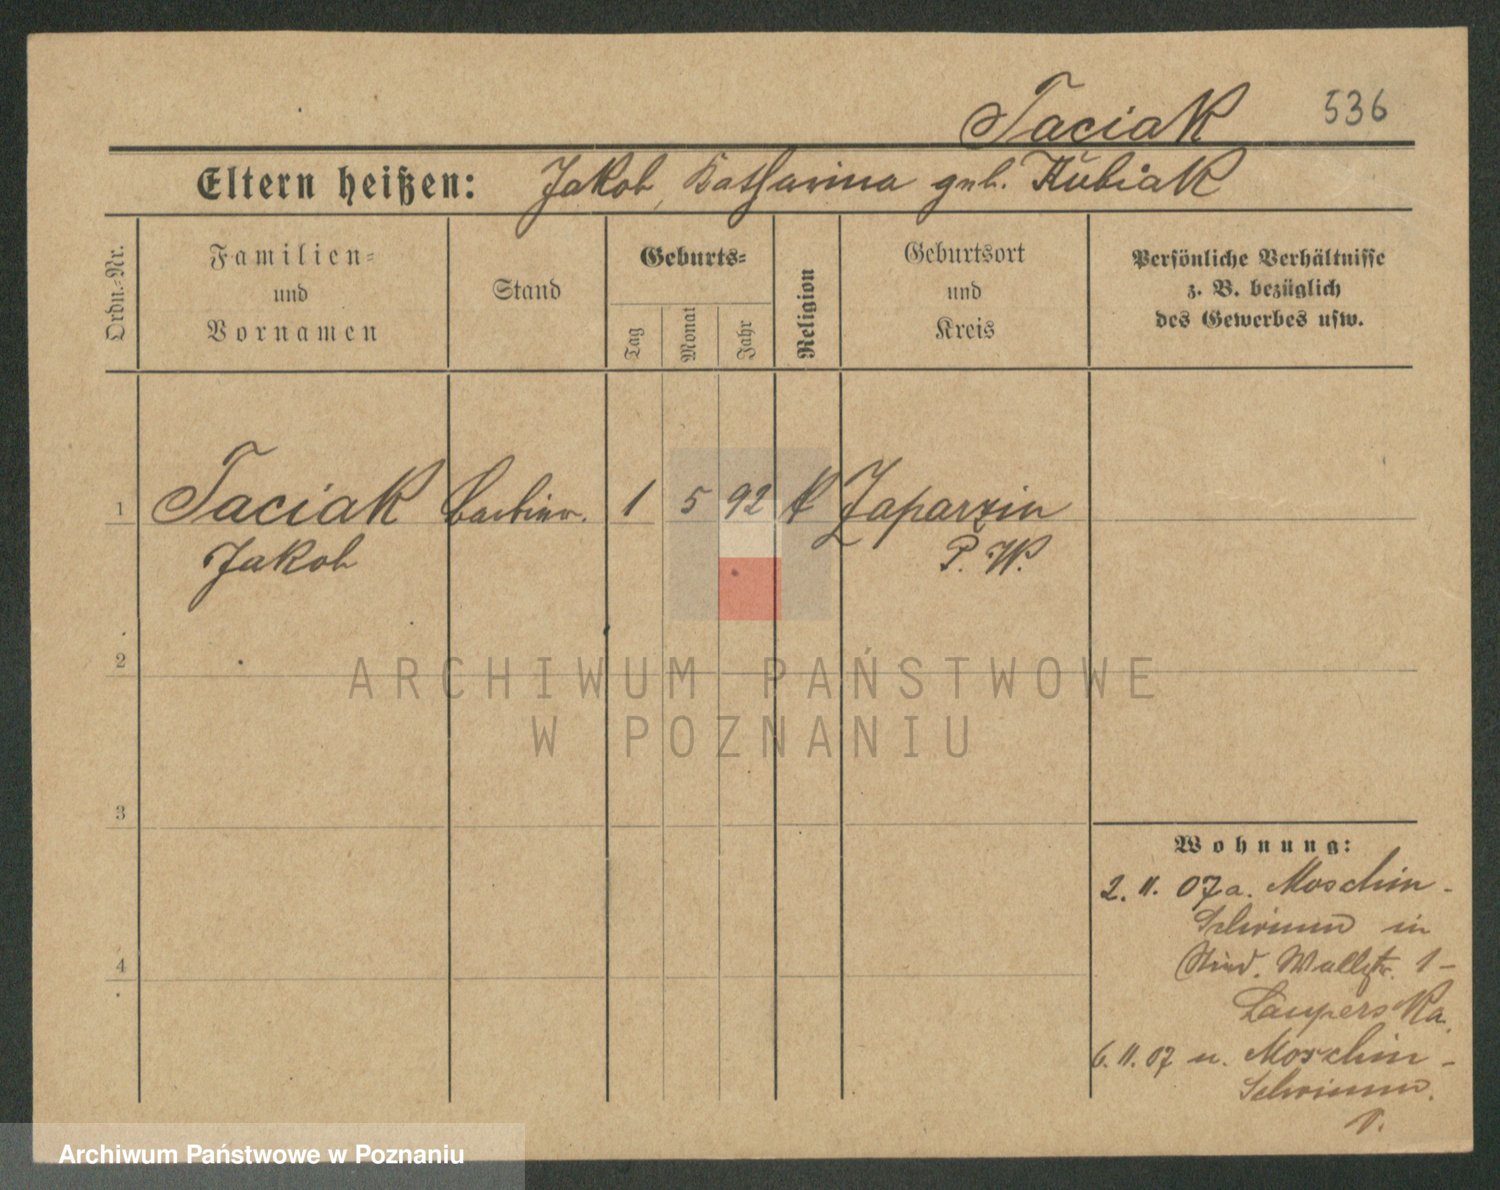 Taciak 536
Eltern heißen: Jakob, Katharina geb. Kubiak
Ordn.-Nr.
Familien-
und
Vornamen
Stand
Geburts-
Tag
Monat
Jahr
Religion
Geburtsort
und
Kreis
Persönliche Verhältnisse
z. B. bezüglich
des Gewerbes usw.
1 Taciak 1 5 92 K Zaparzin
Jakob P. W.
2
ARCHIWUM PAŃSTWOWE
W POZNANIU
3
4
Wohnung:
2. 11. 07 a. Moschin -
in
Wallstr. 1 -
6. 11. 07 u. Moschin -
Archiwum Państwowe w Poznaniu